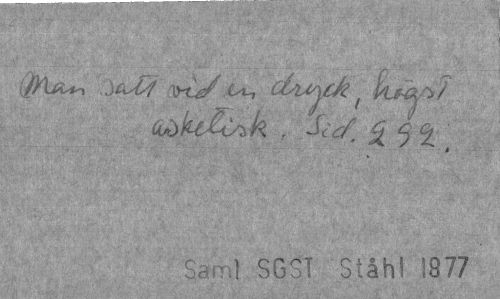 Man satt vid en dryck, högst
asketisk. Sid. 292.
Saml SGST Ståhl 1877